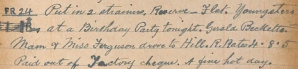 PR 24 Put in 2 strainers, Reserve - Flat. Youngsters
at a Birthday Party tonight. Gerald Becketts.
Mam & Miss Ferguson drove to Hill. R. Retd. 8.5
Paid out of Factory cheque. A fine hot day.